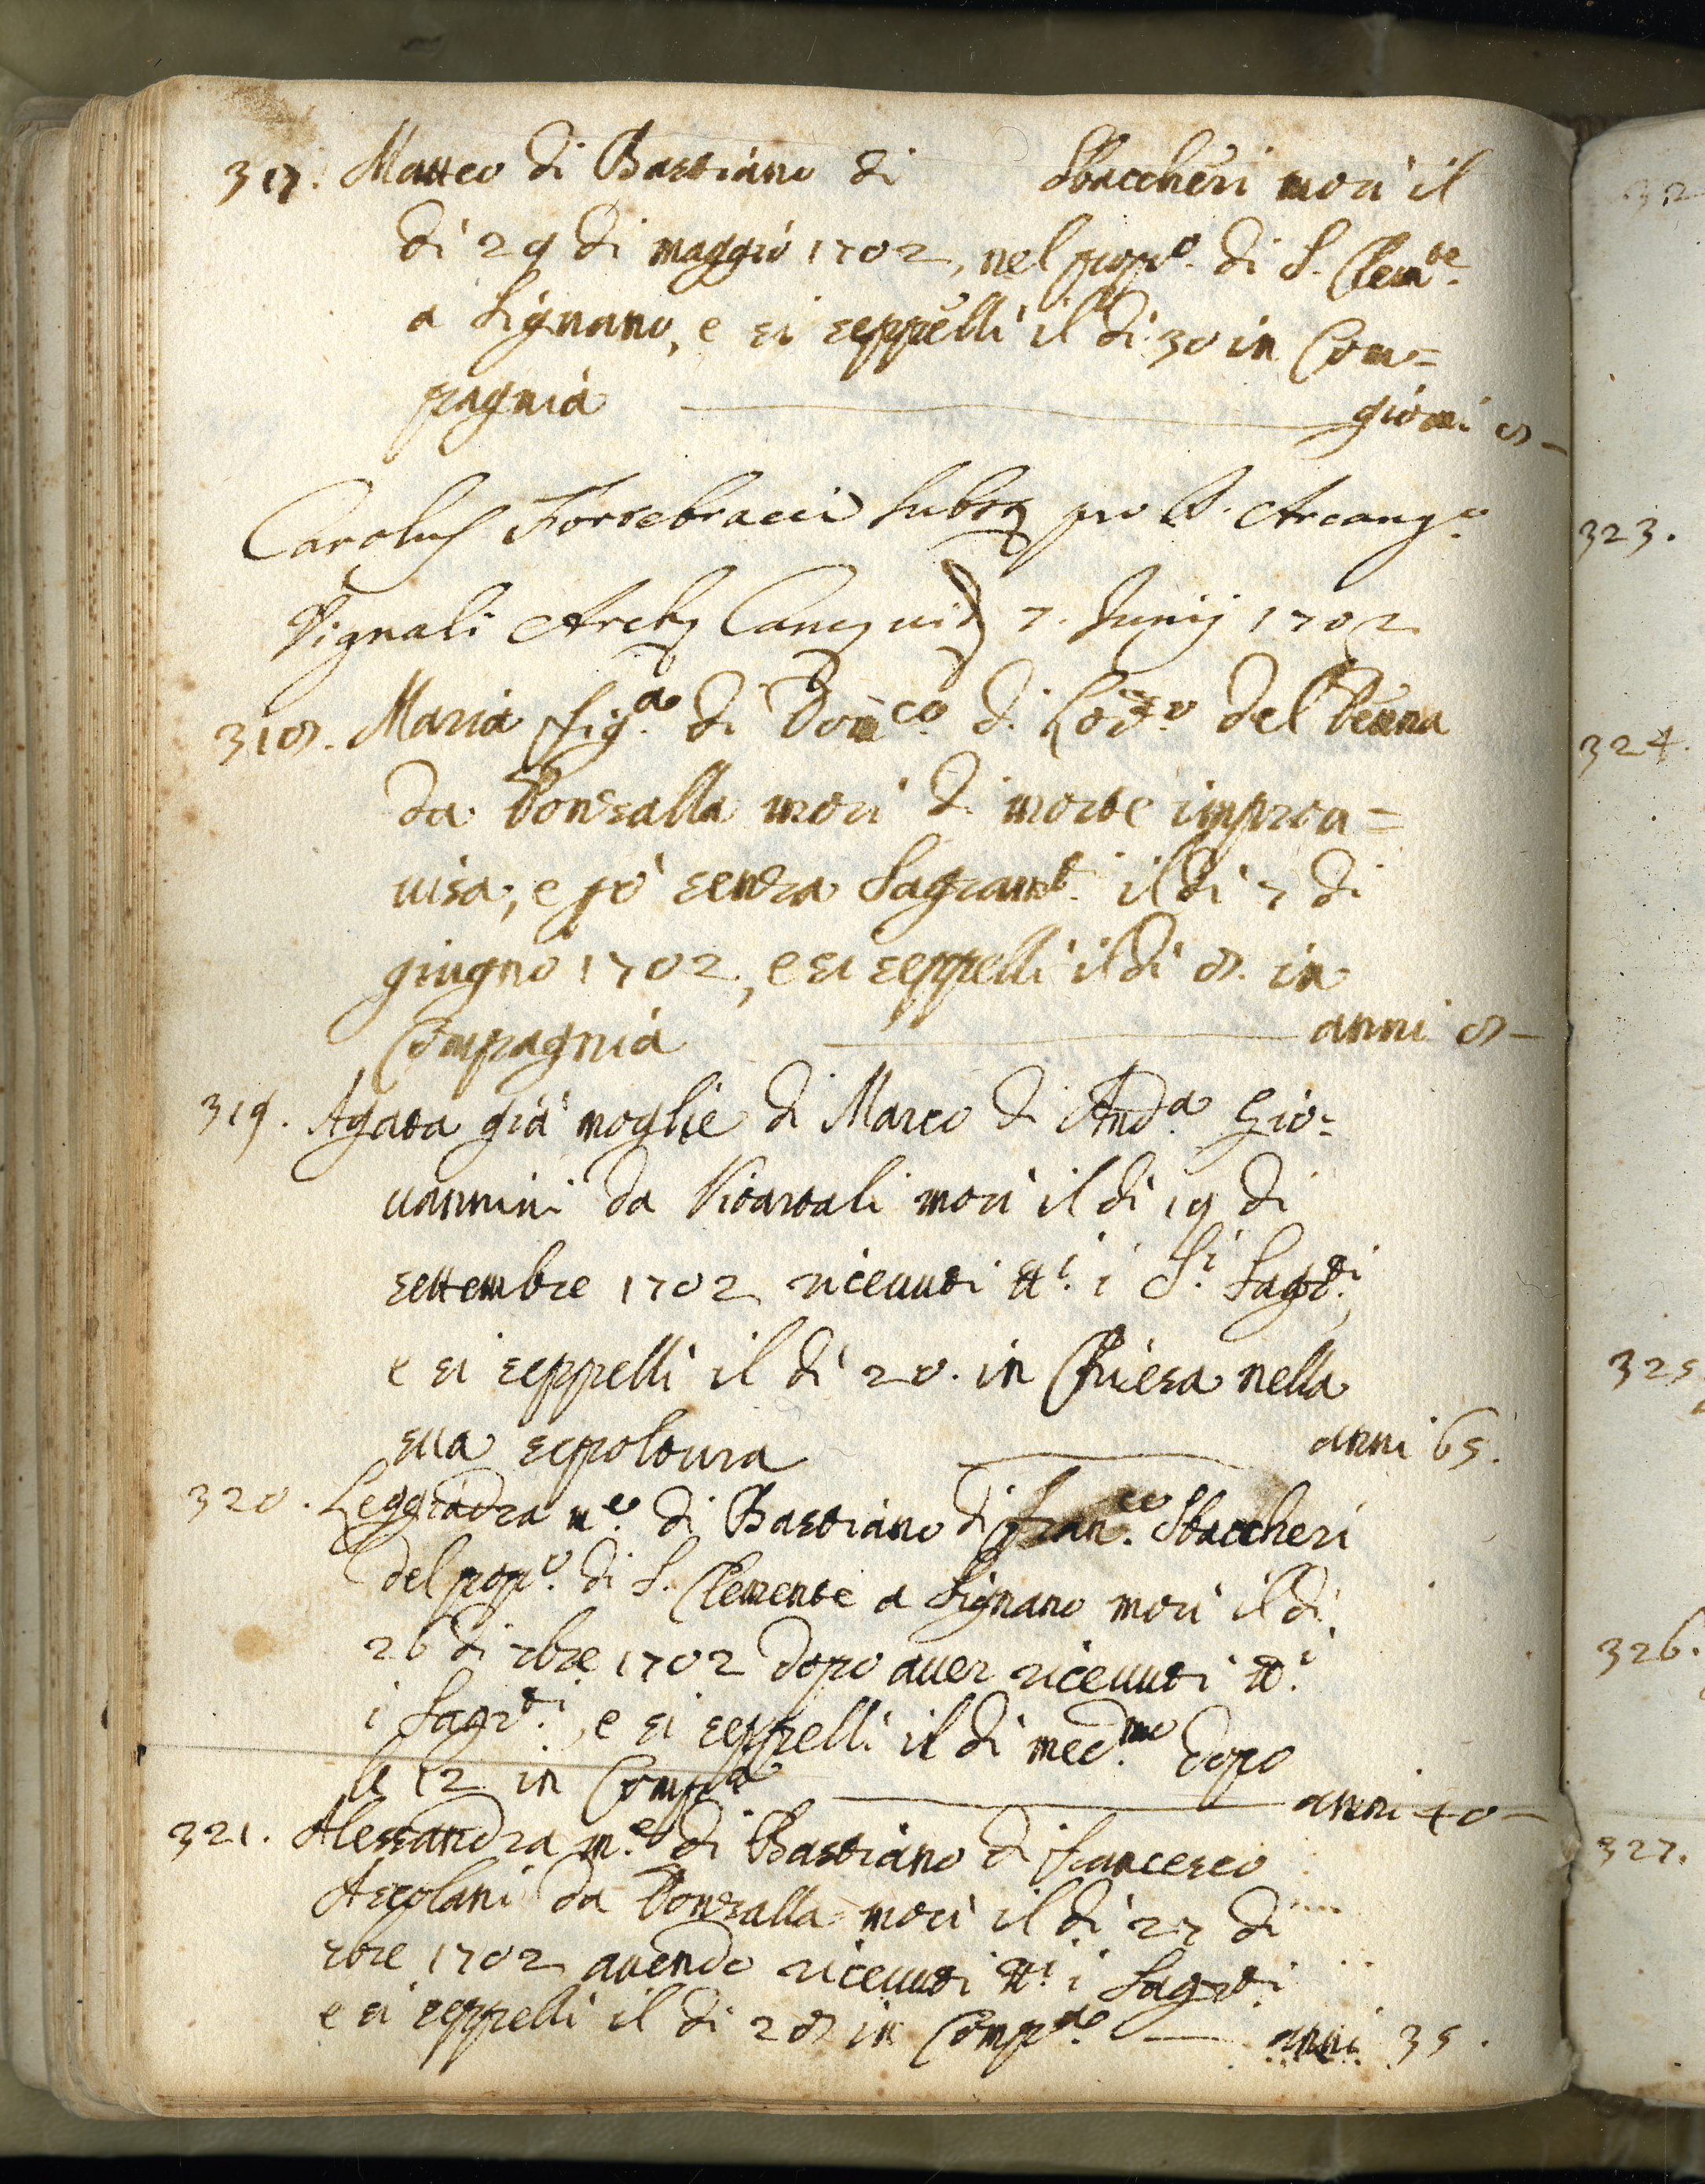 317. Matteo di Bastiano di Staccheri morì il
dì 29 di maggio 1702, nel popo. di S. Clemte.
a Signano, e si seppellì il dì 30 in Com=
pagnia giorni 8
Carolus Fortebracci pro D. Arcango.
Vignali 7. Junij 1702
318. Maria figa. di Domco. di Lodo. del Penna
da Ponzalla morì di morte improu=
uisa, e pò senza Sagramt. il dì 7 di
giugno 1702, e si seppellì il dì 8. in
Compagnia anni 8
319. Agata già moglie di Marco di Anda. Gio=
uannini da Vitartali morì il dì 19 di
settembre 1702 riceuuti tti. i Si. Sagti.,
e si seppellì il dì 20. in Chiesa nella
sua sepoltura anni 65.
320. Leggiadra me. di Bastiano di Franco. Staccheri
del popo. di S. Clemente a Signano morì il dì
26 di 7bre 1702 dopo auer riceuuti tti.
i Sagrti., e si seppellì il dì medmo. dopo
le 12 in Compa. anni 40
321. Alessandra me. di Bastiano di francesco
Ascolani da Ponzalla morì il dì 27 di
7bre 1702 auendo riceuuti tti. i Sagrti.
e si seppellì il dì 28 in Compa. anni 35.
323.
324.
325
326.
327.